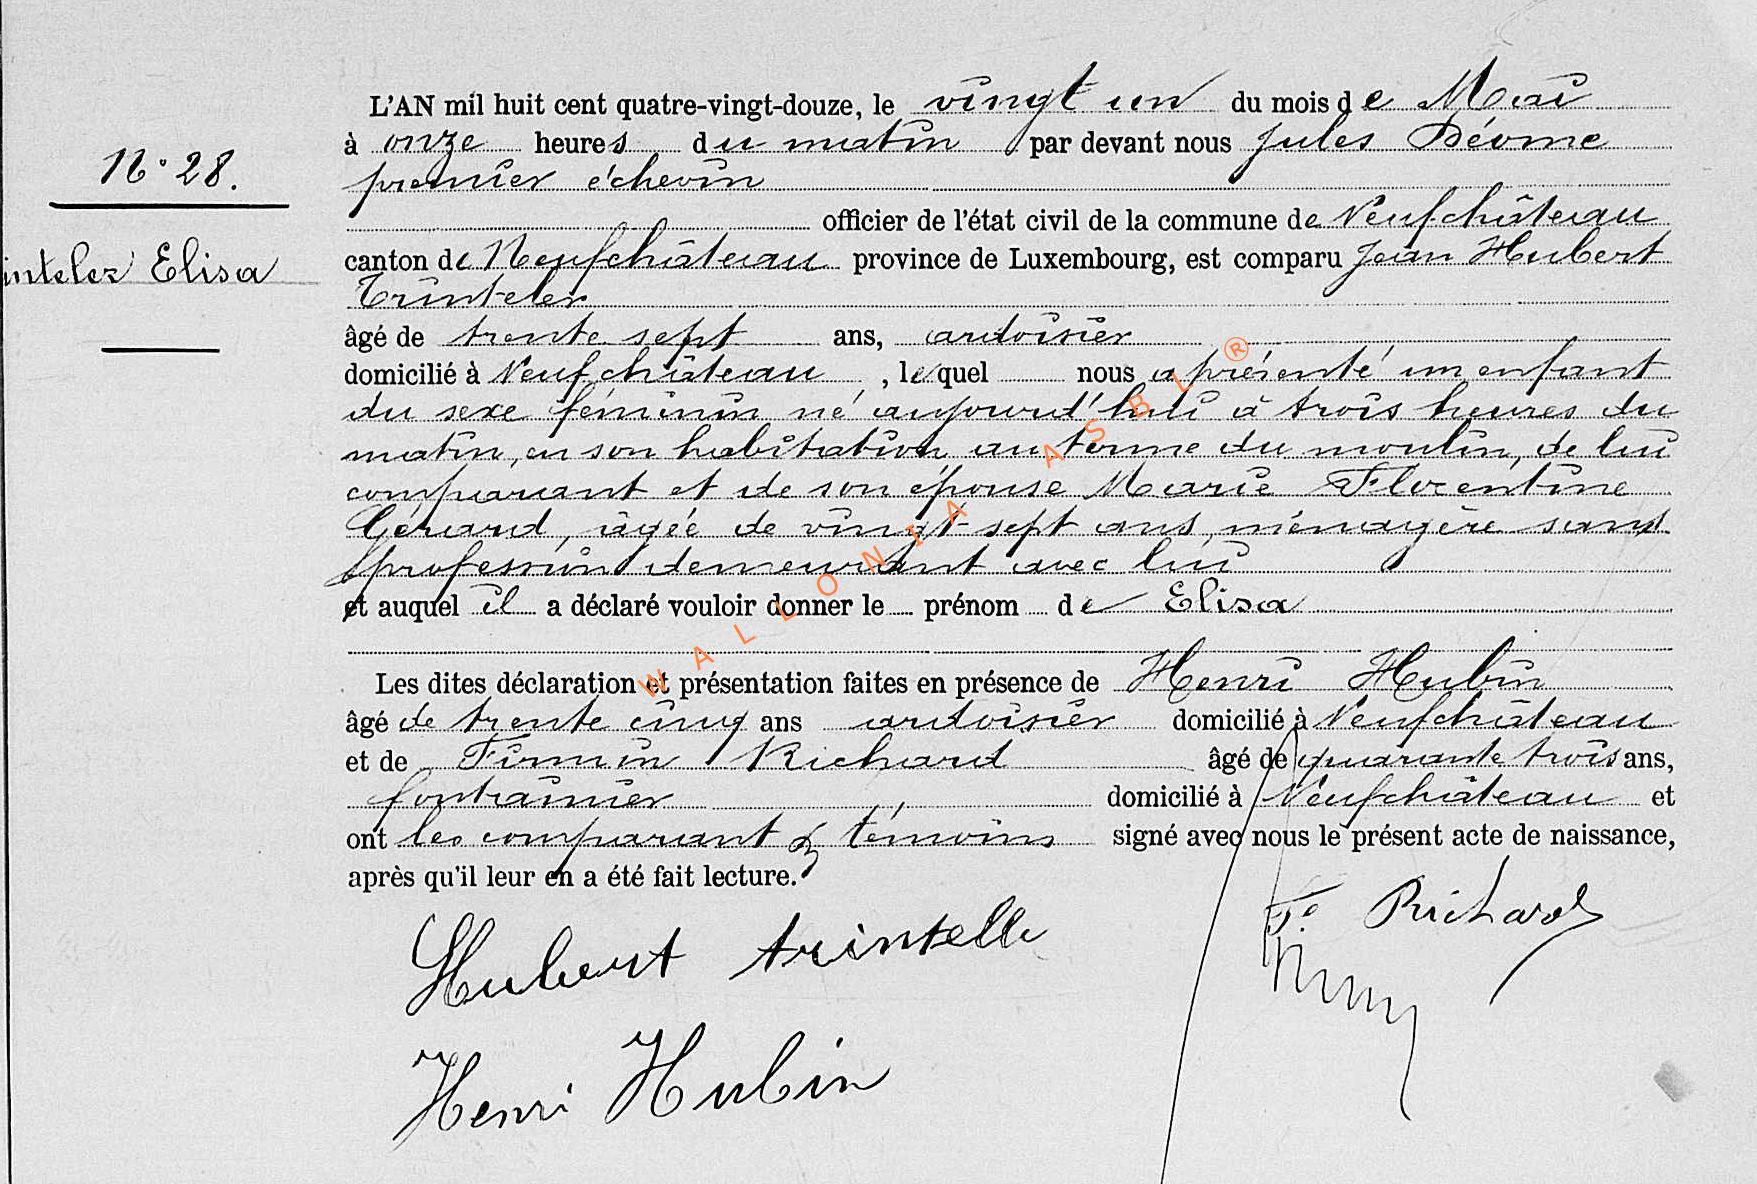 L'AN mil huit cent quatre-vingt-douze, le vingt un du mois de Mai
à onze heures du matin par devant nous Jules Déome
premier échevin
N° 28.
officier de l'état civil de la commune de Neufchâteau
inteler Elisa
canton de Neufchâteau province de Luxembourg, est comparu Jean Hubert
Trinteler
âgé de trente sept ans, ardoisier
domicilié à Neufchâteau, lequel nous a présenté un enfant
du sexe féminin né aujourd'hui à trois heures du
matin, en son habitation au terme du moulin, de lui
comparant et de son épouse Marie Florentine
Gérard, âgée de vingt-sept ans, ménagère sans
profession demeurant avec lui
et auquel il a déclaré vouloir donner le prénom de Elisa
Les dites déclaration et présentation faites en présence de Henri Hubin
âgé de trente cinq ans ardoisier domicilié à Neufchâteau
et de Firmin Richard âgé de quarante trois ans,
fontainier domicilié à Neufchâteau et
ont les comparant & témoins signé avec nous le présent acte de naissance,
après qu'il leur en a été fait lecture.
Hubert trintelle
F. Richard
Henri Hubin
WALLONIA ASBL ®